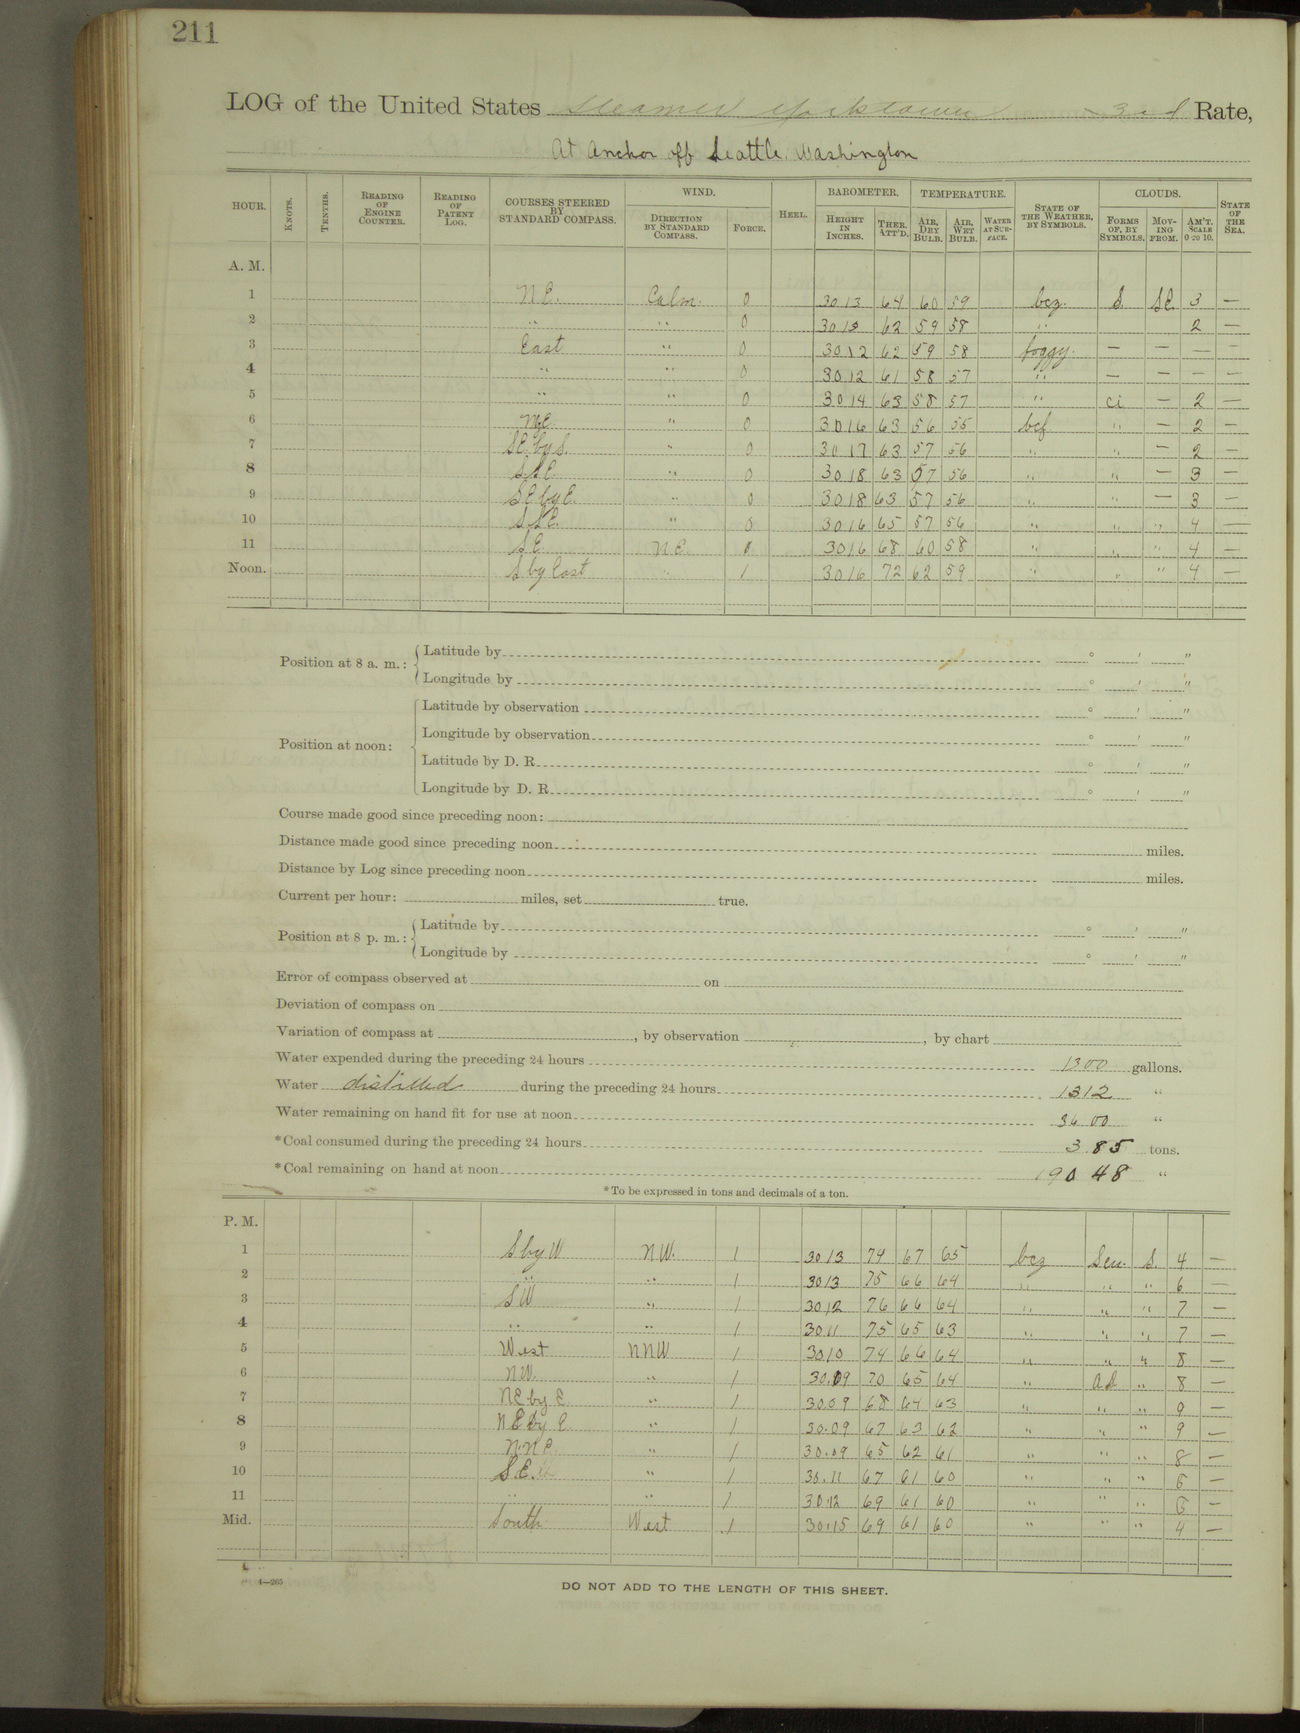 211
LOG of the United States Steamer Yorktown 3rd Rate,
At Anchor off Seattle, Washington
HOUR. KNOTS. TENTHS. READING OF ENGINE COUNTER. READING OF PATENT LOG. COURSES STEERED BY STANDARD COMPASS. WIND. DIRECTION BY STANDARD COMPASS. FORCE. HEEL. BAROMETER. HEIGHT IN INCHES. THER. ATT'D. TEMPERATURE. AIR, DRY BULB. AIR, WET BULB. WATER AT SURFACE. STATE OF THE WEATHER, BY SYMBOLS. CLOUDS. FORMS OF, BY SYMBOLS. MOVING FROM. AM'T. SCALE 0 TO 10. STATE OF THE SEA.
A. M.
1 N.E. Calm. 0 30 13 64 60 59 bcz. S. SE 3 —
2 " " 0 30 13 62 59 58 " 2 —
3 East " 0 30 12 62 59 58 foggy. — — — —
4 " " 0 30 12 61 58 57 " — — — —
5 " " 0 30 14 63 58 57 " ci — 2 —
6 NE " 0 30 16 63 56 55 bcf " — 2 —
7 SE by S. " 0 30 17 63 57 56 " " — 2 —
8 SSE " 0 30 18 63 57 56 " " — 3 —
9 SE by E. " 0 30 18 63 57 56 " " — 3 —
10 SSE. " 0 30 16 65 57 56 " " " 4 —
11 SE N.E. 30 16 68 60 58 " " " 4 —
Noon. S by East " 1 30 16 72 62 59 " " " 4 —
Position at 8 a. m.: Latitude by ° ' "
Longitude by ° ' "
Position at noon: Latitude by observation ° ' "
Longitude by observation ° ' "
Latitude by D. R. ° ' "
Longitude by D. R. ° ' "
Course made good since preceding noon:
Distance made good since preceding noon miles.
Distance by Log since preceding noon miles.
Current per hour: miles, set true.
Position at 8 p. m.: Latitude by ° ' "
Longitude by ° ' "
Error of compass observed at on
Deviation of compass on
Variation of compass at , by observation , by chart
Water expended during the preceding 24 hours 1300 gallons.
Water distilled during the preceding 24 hours 1312 "
Water remaining on hand fit for use at noon 3600 "
*Coal consumed during the preceding 24 hours 3 85 tons.
*Coal remaining on hand at noon 190 48 "
*To be expressed in tons and decimals of a ton.
P. M.
1 S by W NW. 1 30 13 74 67 65 bcz Scu. S. 4 —
2 " " 1 30 13 75 66 64 " " " 6 —
3 SW " 1 30 12 76 66 64 " " " 7 —
4 " " 1 30 11 75 65 63 " " " 7 —
5 West NNW 1 30 10 74 66 64 " " " 8 —
6 NW. " 1 30.09 70 65 64 " " 8 —
7 NE by E " 1 30 09 68 64 63 " " " 9 —
8 NE by E " 1 30.09 67 63 62 " " " 9 —
9 NNE. " 1 30.09 65 62 61 " " " 8 —
10 S.E. " 1 30.11 67 61 60 " " " —
11 " " 1 30 12 69 61 60 " " " —
Mid. South West 1 30.15 69 61 60 " " " 4 —
4—265
DO NOT ADD TO THE LENGTH OF THIS SHEET.